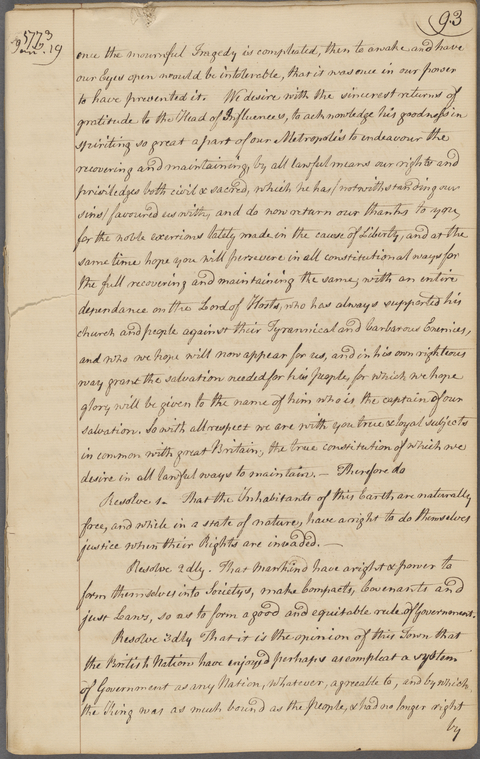 93
1773
Jan. 19
once the mournful Tragedy is compleated, then to awake and have
our Eyes open would be intolerable, that it was once in our power
to have prevented it. We desire with the sincerest returns of
gratitude to the Head of Influences, to acknowledge his goodness in
spiriting so great a part of our Metropolis to endeavour the
recovering and maintaining, by all lawful means our rights and
priviledges both civil & sacred, which he has (notwithstanding our
sins) favoured us with, and do now return our thanks to you,
for the noble exertions lately made in the cause of Liberty, and at the
same time hope you will persevere in all constitutional ways for
the full recovering and maintaining the same, with an entire
dependance on the Lord of Hosts, who has always supported his
church and people against their Tyrannical and barbarous Enemies,
and who we hope will now appear for us, and in his own righteous
way grant the salvation needed for his people, for which we hope
glory will be given to the name of him who is the captain of our
salvation. so with all respect we are with you true & loyal subjects
in common with great Britain, the true constitution of which we
desire in all lawful ways to maintain. — Therefore do
Resolve 1. That the Inhabitants of this Earth, are naturally
free, and while in a state of nature, have a right to do themselves
justice when their Rights are invaded. —
Resolve 2dly. That Mankind have a right & power to
form themselves into Societys, make Compacts, Covenants and
just Laws, so as to form a good and equitable rule of Government.
Resolve 3dly That it is the opinion of this Town that
the British Nation have enjoy'd perhaps as compleat a system
of Government as any Nation, whatever, agreeable to, and by which
the King was as much bound as the People, & had no longer right
by